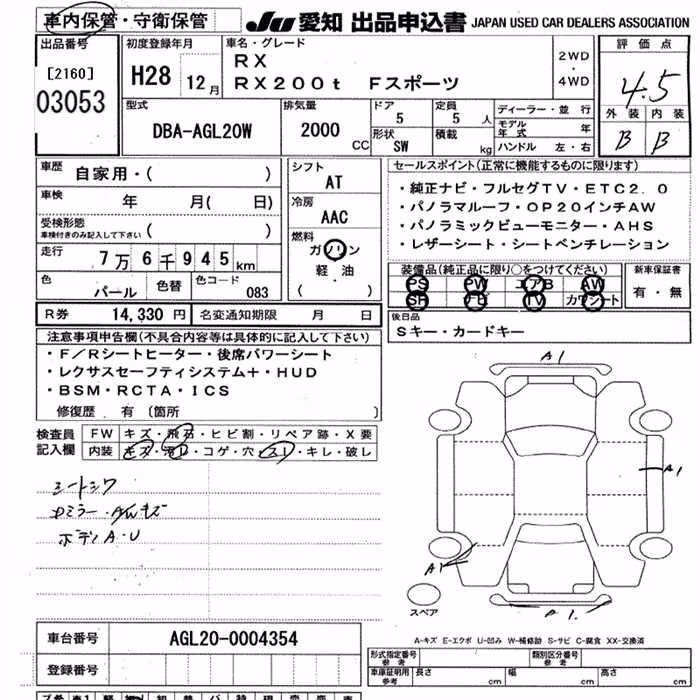 車内保管・守衛保管
JU 愛知 出品申込書 JAPAN USED CAR DEALERS ASSOCIATION
出品番号
[2160]
03053
初度登録年月
H28 12月
車名・グレード
RX
RX200t Fスポーツ
2WD
・
4WD
評価点
4.5
外装 内装
B B
型式
DBA-AGL20W
排気量
2000 CC
ドア
5
定員
5 人
形状
SW
積載
kg
ディーラー・並行
モデル年式 年
ハンドル 左・右
車歴
自家用・( )
車検
年 月( 日)
受検形態
車検付きのみ記入して下さい ( )
走行
7万6千945km
色
パール
色替
色コード
083
シフト
AT
冷房
AAC
燃料
ガソリン
軽・油
( )
セールスポイント(正常に機能するものに限ります)
・純正ナビ・フルセグTV・ETC2.0
・パノラマルーフ・OP20インチAW
・パノラミックビューモニター・AHS
・レザーシート・シートベンチレーション
装備品(純正品に限り○をつけてください)
PS PW エアB AW
SR ナビ TV カワシート
新車保証書
有・無
R券 14,330円 名変通知期限 月 日
後日品
Sキー・カードキー
注意事項申告欄(不具合内容等は具体的に記入して下さい)
・F/Rシートヒーター・後席パワーシート
・レクサスセーフティシステム+・HUD
・BSM・RCTA・ICS
修復歴 有 〔箇所 〕
検査員
記入欄
FW キズ・飛石・ヒビ割・リペア跡・X要
内装 キズ・汚レ・コゲ・穴・スレ・キレ・破レ
シートシワ
ボディA・U
A1
A1
A1
A1.
スペア
A-キズ E-エクボ U-凹み W-補修跡 S-サビ C-腐食 XX-交換済
車台番号
AGL20-0004354
登録番号
形式指定番号
参考
類別区分番号
参考
車庫証明用
参考
長さ cm 幅 cm 高さ cm